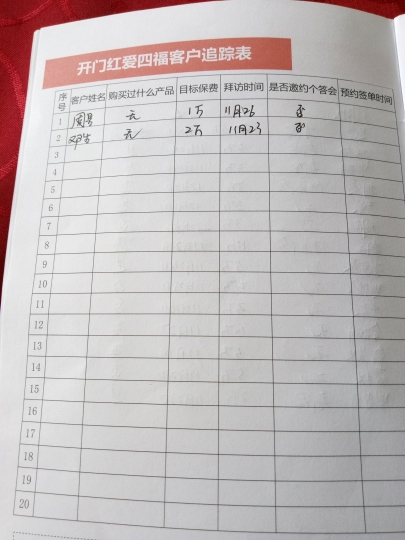 开门红爱四福客户追踪表
序号 客户姓名 购买过什么产品 目标保费 拜访时间 是否邀约个答会 预约签单时间
1 无 1万 11月26 否
2 邓 无 2万 11月23 否
3
4
5
6
7
8
9
10
11
12
13
14
15
16
17
18
19
20